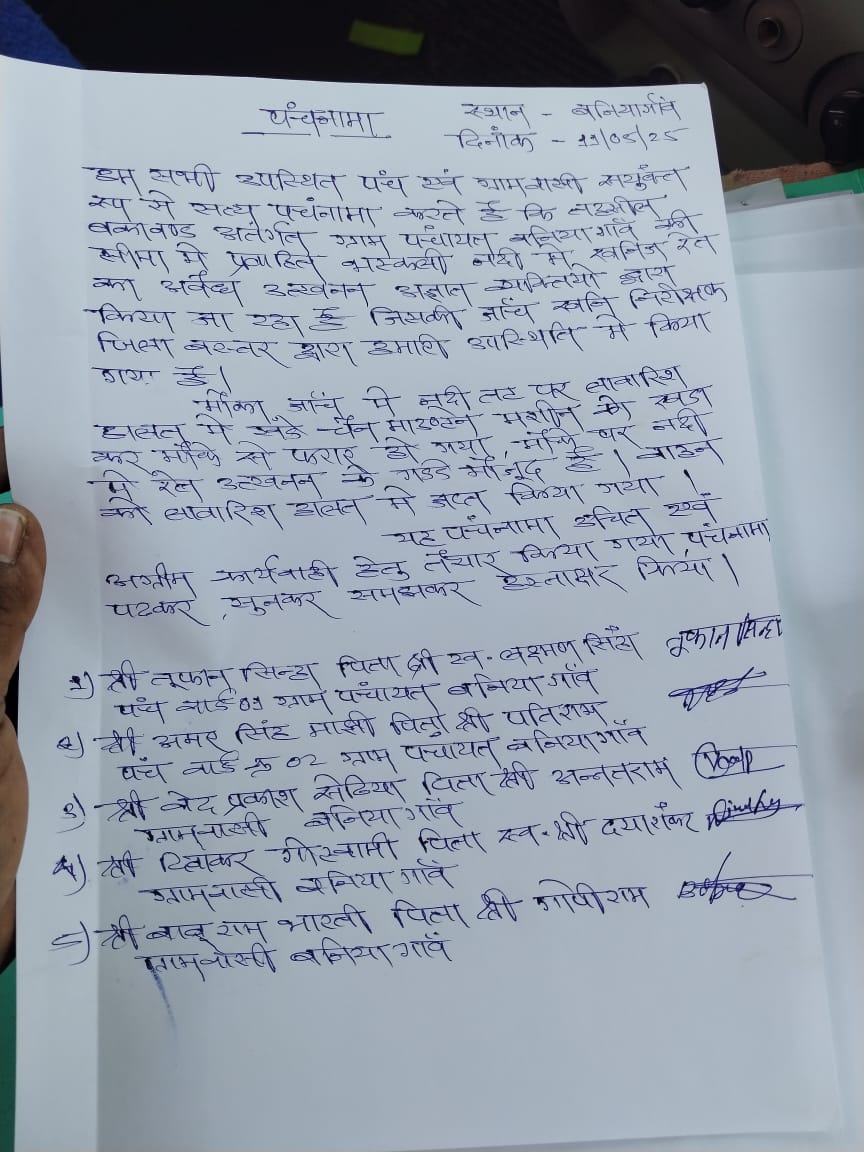 पंचनामा
स्थान - बनियागाँव
दिनाँक - 11/05/25
हम सभी उपस्थित पंच एवं ग्रामवासी सयुंक्त
रूप से सत्य पंचनामा करते है कि तहसील
बकावण्ड अतंर्गत ग्राम पंचायत बनियागाँव की
सीमा मे प्रवाहित भास्कली नदी मे खनिज रेत
का अवैध उत्खनन अज्ञात व्यक्तियो द्वारा
किया जा रहा है जिसकी जाँच खनि निरीक्षक
जिला बस्तर द्वारा हमारी उपस्थिति मे किया
गया है।
मौका जाँच मे नदी तट पर लावारिश
हालत मे खड़े चैन माउण्टेन मशीन को खडा
कर मौके से फरार हो गया, मौके पर नदी
मे रेत उत्खनन के गडडे मौजूद है। वाहन
को लावारिश हालत मे जप्त किया गया।
यह पंचनामा उचित एवं
अग्रीम कार्यवाही हेतु तैयार किया गया, पंचनामा
पढकर, सुनकर समझकर हस्ताक्षर किया।
1) श्री तूफान सिन्हा पिता श्री स्व. लक्ष्मण सिंह तूफान सिन्हा
पंच वार्ड 01 ग्राम पंचायत बनियागाँव
2) श्री अमर सिंह माझी पिता श्री पतिराम
पंच वार्ड क्र 02 ग्राम पंचायत बनियागाँव
3) श्री वेद प्रकाश सेठिया पिता श्री अन्नतराम
ग्रामवासी बनियागाँव
4) श्री दिवाकर गोस्वामी पिता स्व. श्री दयाशंकर
ग्रामवासी बनियागाँव
5) श्री बाबू राम भारती पिता श्री गोपीराम
ग्रामवासी बनियागाँव